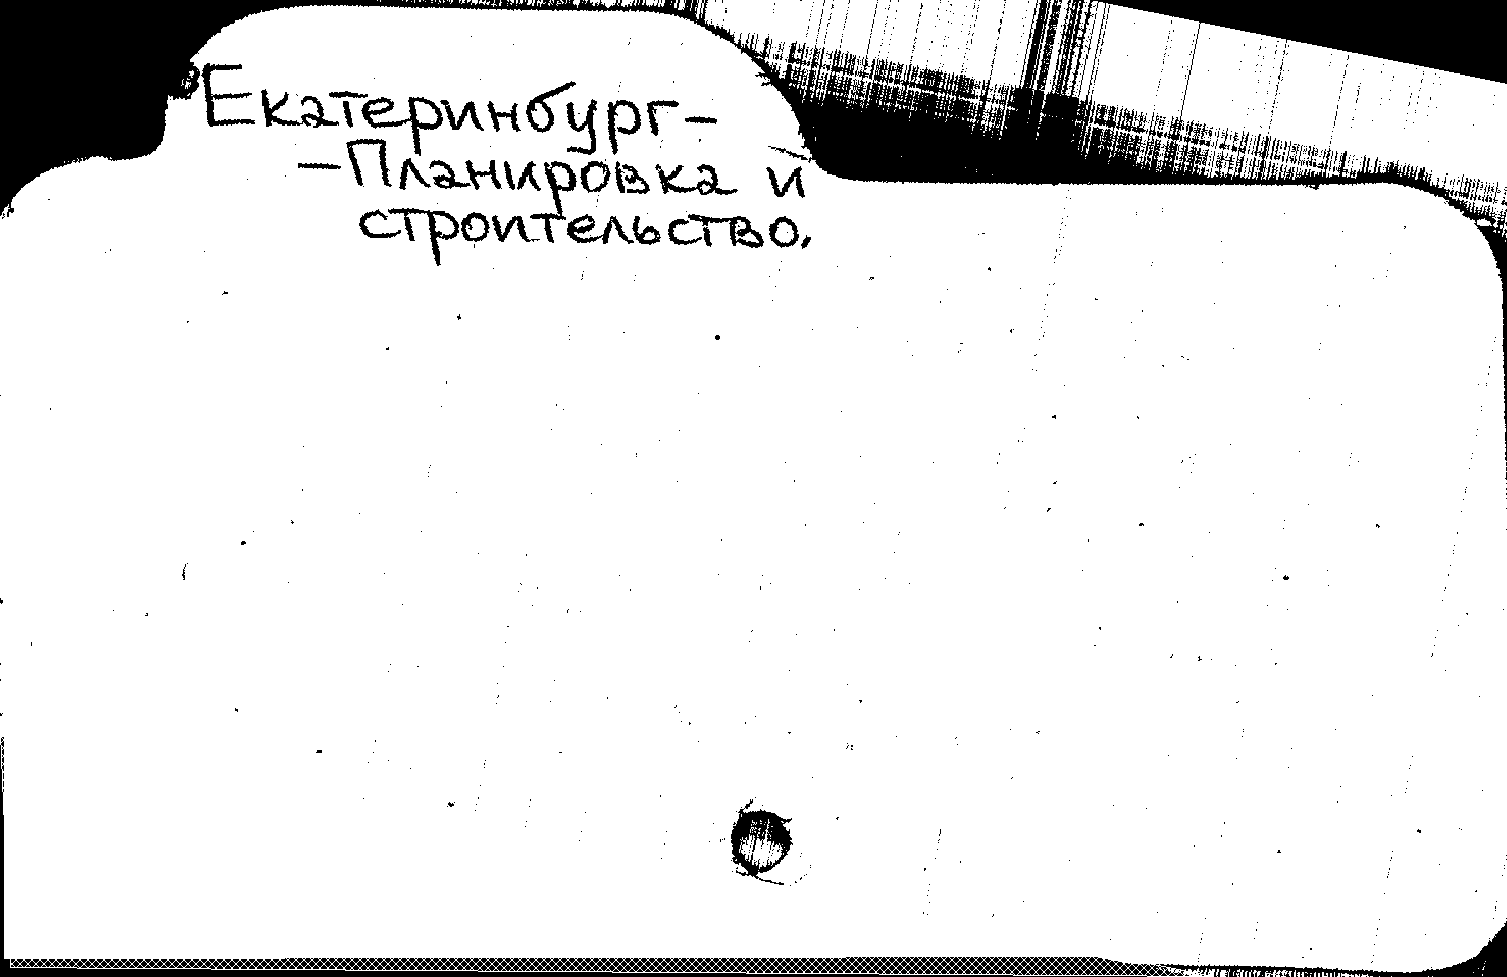 Екатеринбург-
-Планировка и
строительство.